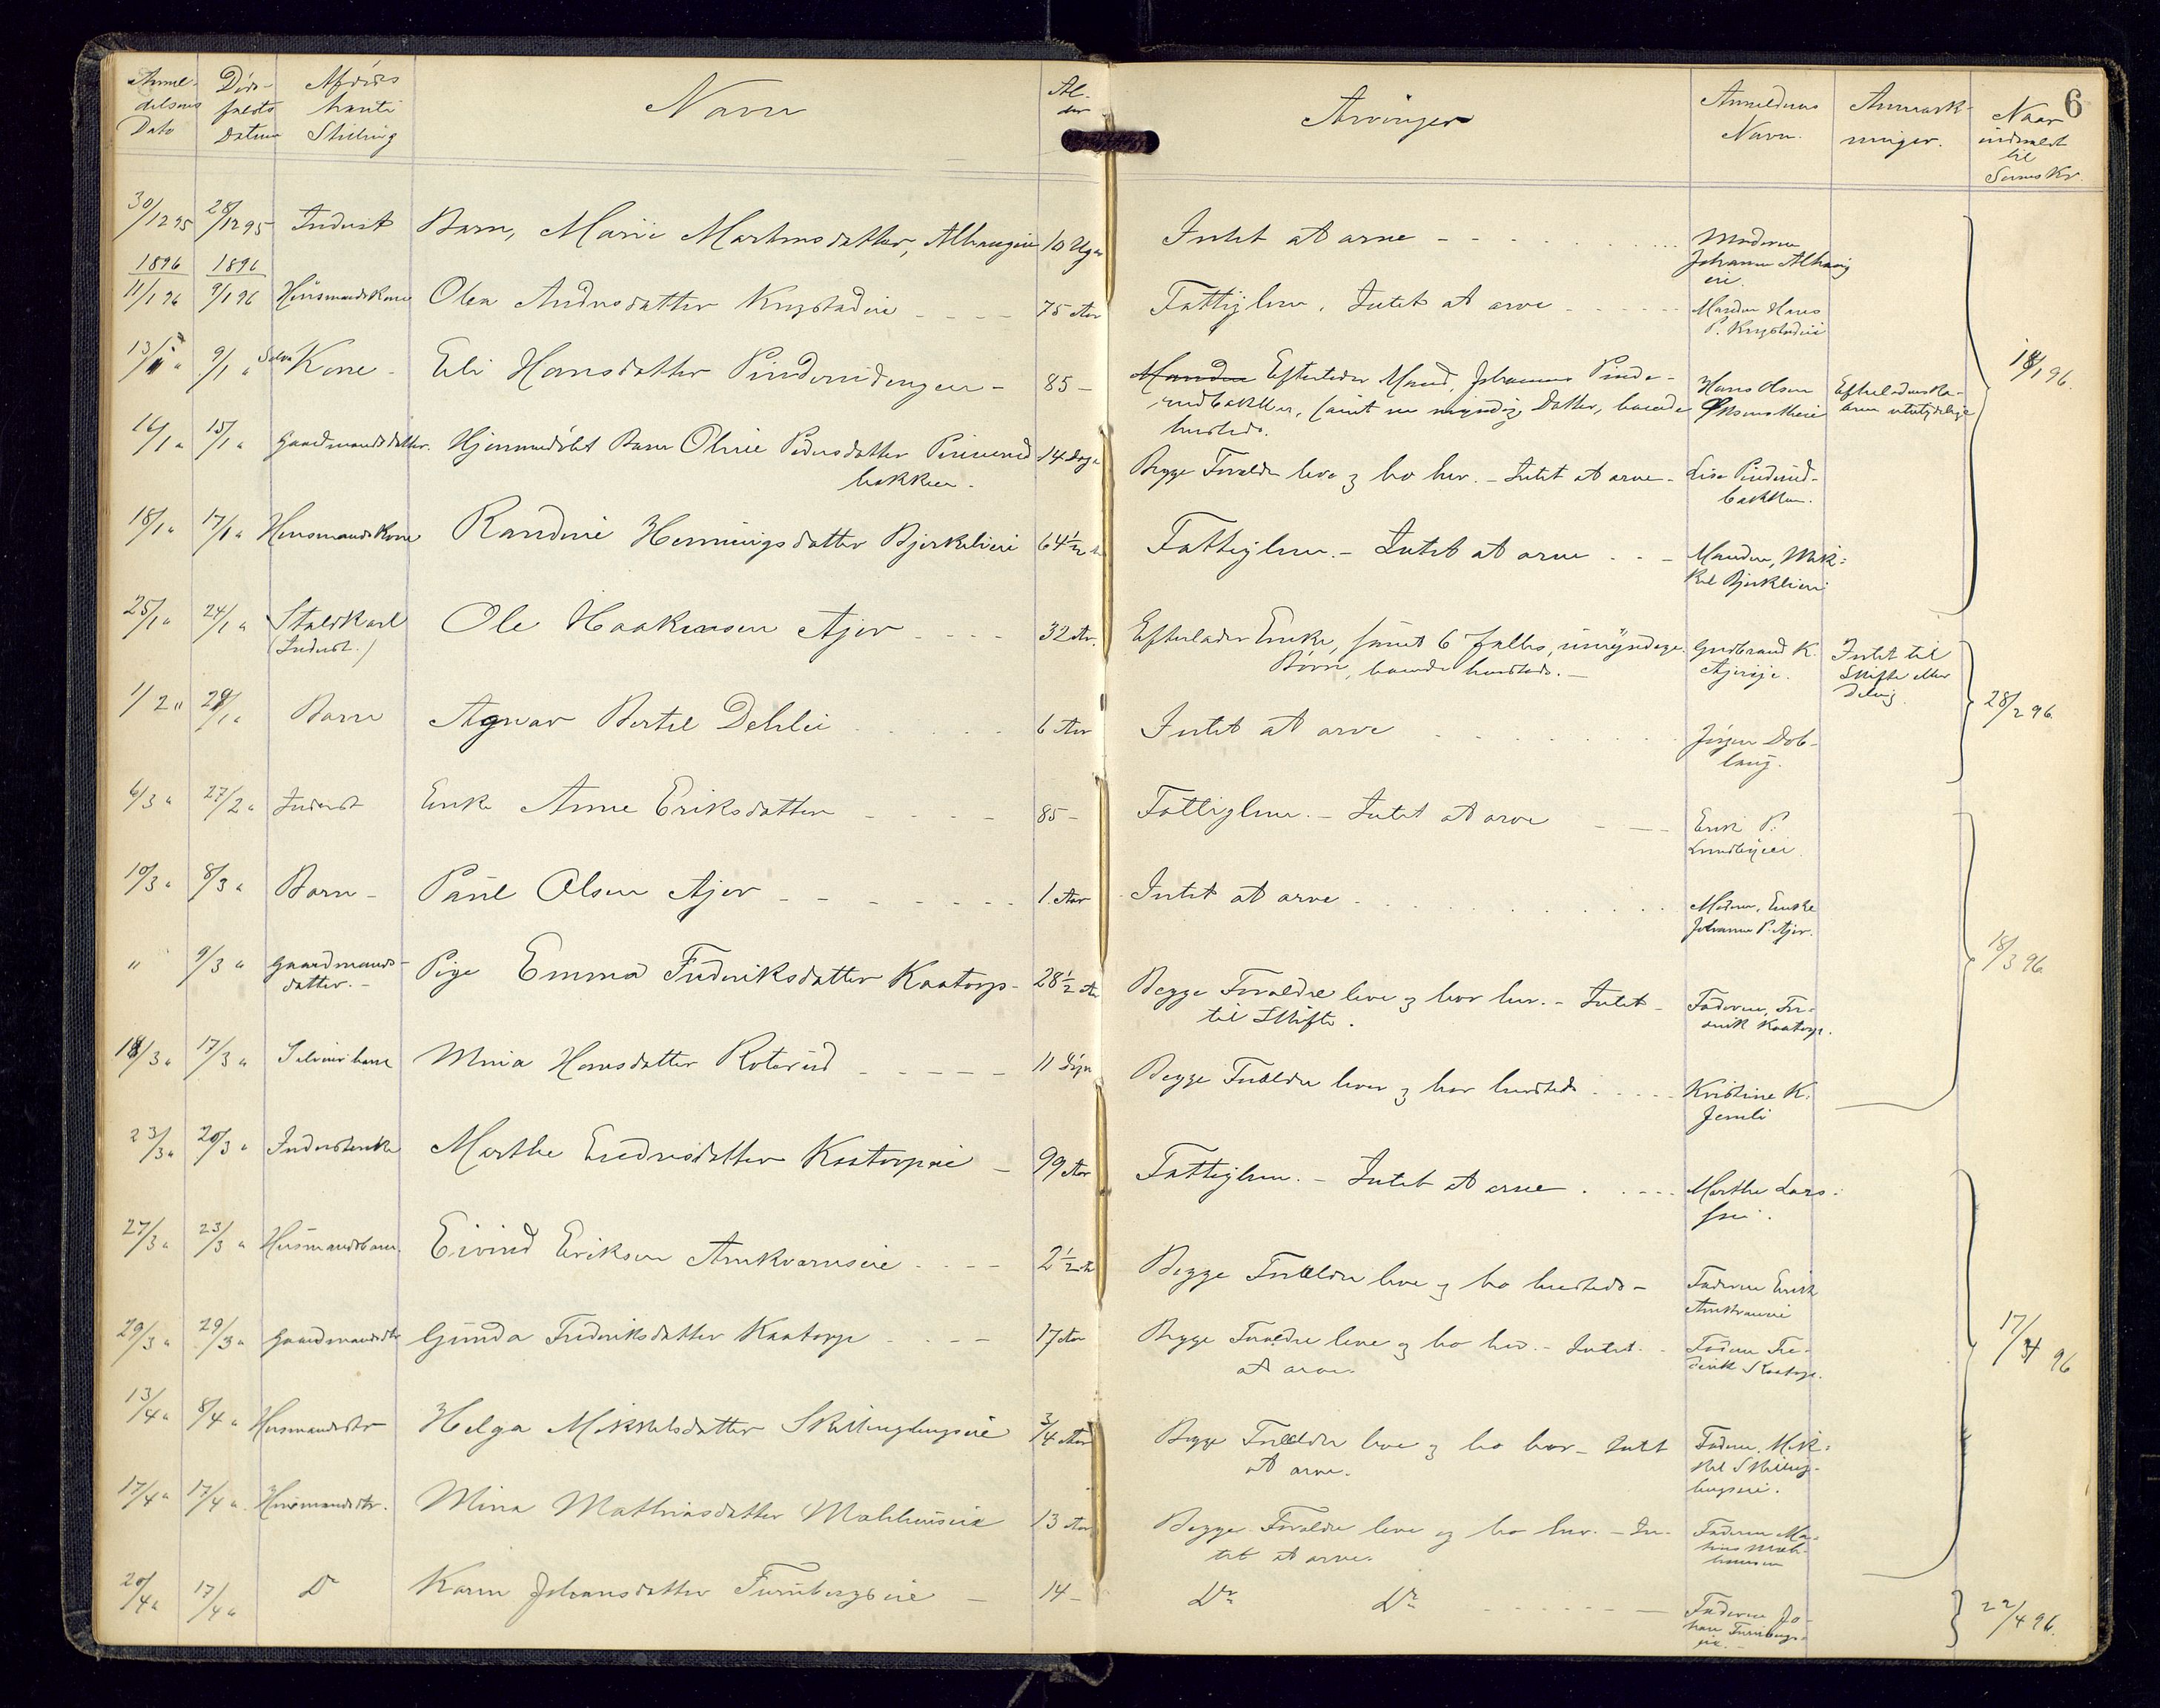 Anmel- Døds- Afdødes Navn Al- Arvinger Anmelderens Anmærk- Naar 6
delsens faldets hante der Navn. ninger. indmeldt
Dato Datum Stilling til
Sorens Kr.
30/12 95 28/12 95 Inderst Barn, Marie Martinsdatter, Alhaugeie 10 Uger Intet at arve - - - Moderen
Johanne Alhaug
eie.
1896 1896
11/1 96 9/1 96 Husmandskone Olea Andersdatter Krystadeie - - - - 75 Aar Fattiglem. Intet at arve - - - Manden Hans
P. Krystadeie
13/1 " 9/1 " Kone - Eli Hansdatter Pinderudengen - 85 - Manden Efterlader Mand, Johannes Pinde- Hans Olsen
rudbakken, samt en myndig Datter, boende
hersteds.
18/1 96.
16/1 " 15/1 " Gaardmandsdatter. Hjemmedøbt Barn Oline Pedersdatter Pinderud 14 Dage Begge Forældre leve og bo her. - Intet at arve - Lise Pinderud-
bakken. bakken.
18/1 " 17/1 " Husmandskone Randine Henningsdatter Bjerkelieie 64 1/2 Fattiglem. - Intet at arve - - - Manden, Mik-
kel Bjerkelieie
25/1 " 24/1 " Staldkarl Ole Haakensen Ajer - - - - 32 Aar. Efterlader Enke, samt 6 fælles, umyndige Gudbrand K. Intet til
(Inderst.) Børn, boende hersteds. - Ajereje. Skifte eller
Deling.
1/2 " 29/1 " Barn Agnar Bertel Dehlie - - - 6 Aar Intet at arve - - - Jørgen Dob-
laug.
28/2 96.
6/3 " 27/2 " Inderst Enke Anne Eriksdatter - - - - 85 - Fattiglem. - Intet at arve - - - Erik P.
10/3 " 8/3 " Barn - Paul Olsen Ajer - - - - 1 Aar Intet at arve - - - Moderen, Enke
Johanne P. Ajer.
" 9/3 " Gaardmands- Pige Emma Frederiksdatter Kaatorp - 28 1/2 Aar Begge Forældre leve og bor her. - Intet - Faderen, Fre-
datter. - til Skifte. derik Kaatorp.
18/3 96
18/3 " 17/3 " Selveierbarn Mina Hansdatter Roterud - - - - - 11 Dage Begge Forældre lever og bor hersteds - - - Kristine K.
Jemli
23/3 " 20/3 " Inderstenke Marthe Endresdatter Kaatorpeie - 99 Aar Fattiglem. - Intet at arve - - - Marthe Lars-
27/3 " 23/3 " Husmandsbarn. Eivind Eriksen Amkvarnseie - - - - 2 1/2 Aar Begge Forældre leve og bo hersteds - Faderen Erik
29/3 " 29/3 " Gaardmandsdtr Gunda Frederiksdatter Kaatorp - - - - 17 Aar Begge Forældre leve og bo her. - Intet - Faderen Fre-
at arve. derik Kaatorp.
17/4 96
13/4 " 8/4 " Husmandsdtr Helga Mikkelsdatter Skillinghugseie 3/4 Aar Begge Forældre leve og bo her - Intet Faderen, Mik-
at arve. kel Skilling-
hugseie.
17/4 " 17/4 " Husmandsdtr. Mina Mathiasdatter Mæhlumseie 13 Aar Begge Forældre leve og bo her. - In- Faderen Ma-
tet at arve. thias Mæh-
20/4 " 17/4 " Do Karen Johansdatter Furubergseie - 14 - Do Do - - - Faderen Jo-
han Furubergs-
eie. -
22/4 96.